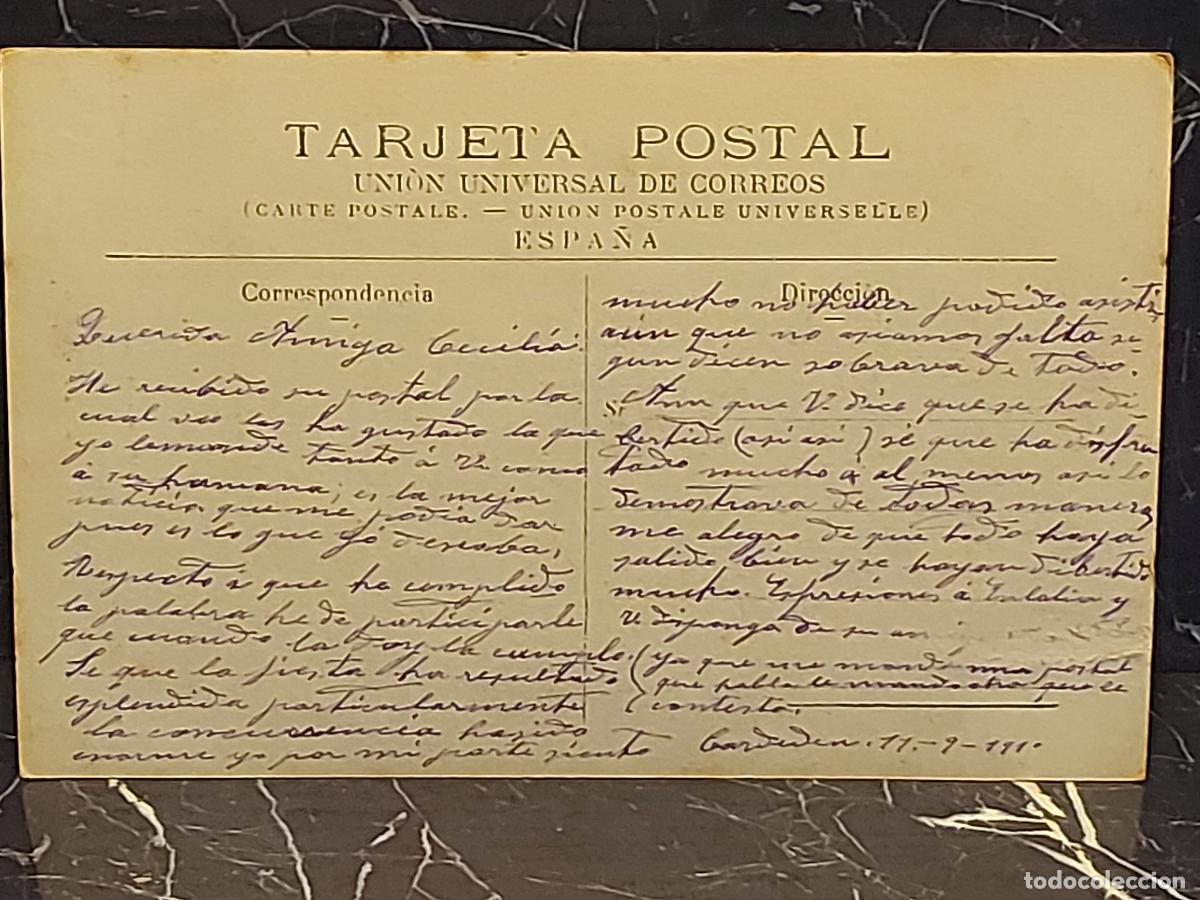 TARJETA POSTAL
UNIÒN UNIVERSAL DE CORREOS
(CARTE POSTALE. — UNION POSTALE UNIVERSELLE)
ESPAÑA
Correspondencia
Querida Amiga Cecilia:
He recibido su postal por la
cual veo les ha gustado la que
yo le mande tanto á V. como
á su hermana; es la mejor
noticia que me podia dar
pues es lo que yó deseaba,
Respecto á que he cumplido
la palabra he de participarle
que cuando la doy la cumplo.
Se que la fiesta ha resultado
esplendida particularmente
la concurrencia ha sido
enorme yo por mi parte siento
Dirección
mucho no haber podido asistir
aún que no haciamos falta se
gun dicen sobrava de todo.
Aun que V. dice que se ha di-
bertido (asi asi) sé que ha disfru
tado mucho ó al menos asi lo
demostrava de todas maneras
me alegro de que todo haya
salido bien y se hayan dibertido
mucho. Espresiones á Eulalia y
V. disponga de su
(ya que me mandó una postal
que habla le mando otra que se
contesta.
Cardedeu. 11-9-911.
todocoleccion